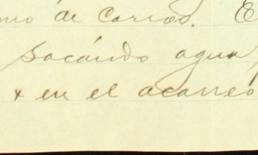 de Carros. E
sacando agua
x en el acarreo